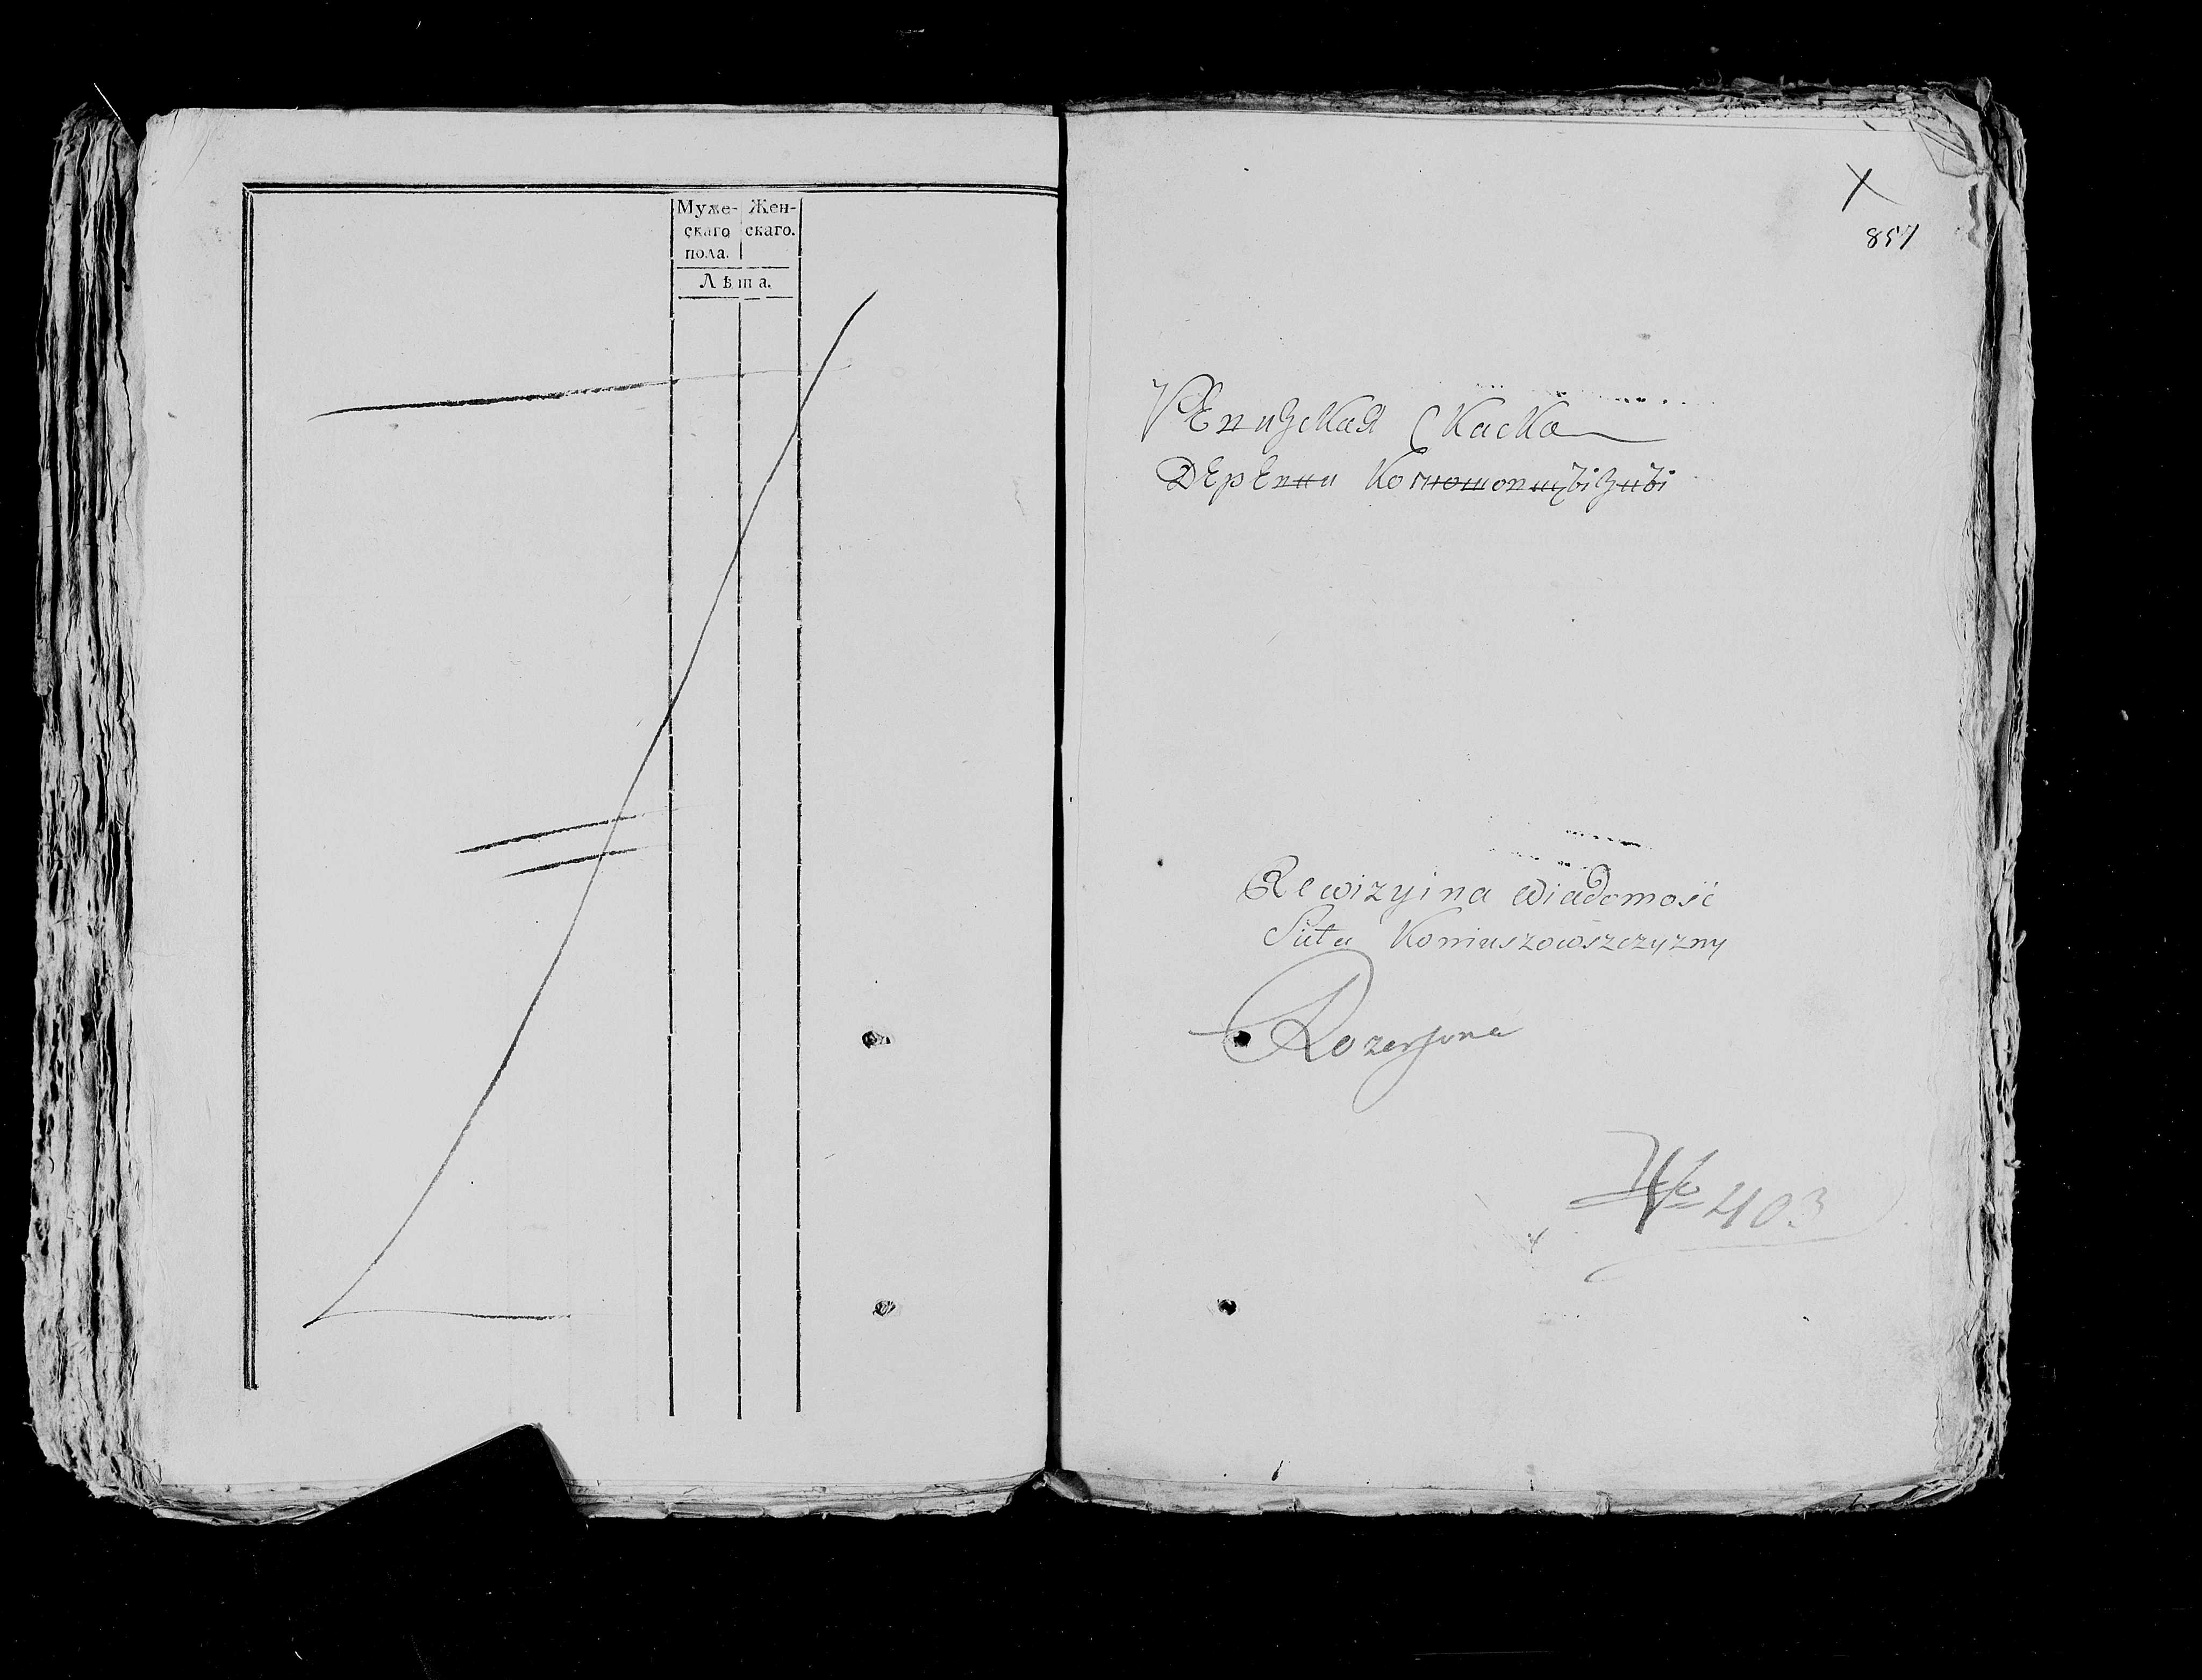 Муже-
скаго
пола.
Жен-
скаго.
Лѣта.
X
857
Ревизская Скаска
Деревни Конюшовщизны
Rewizyina wiadomość
Siula Koniuszowszczyzny
№ 403